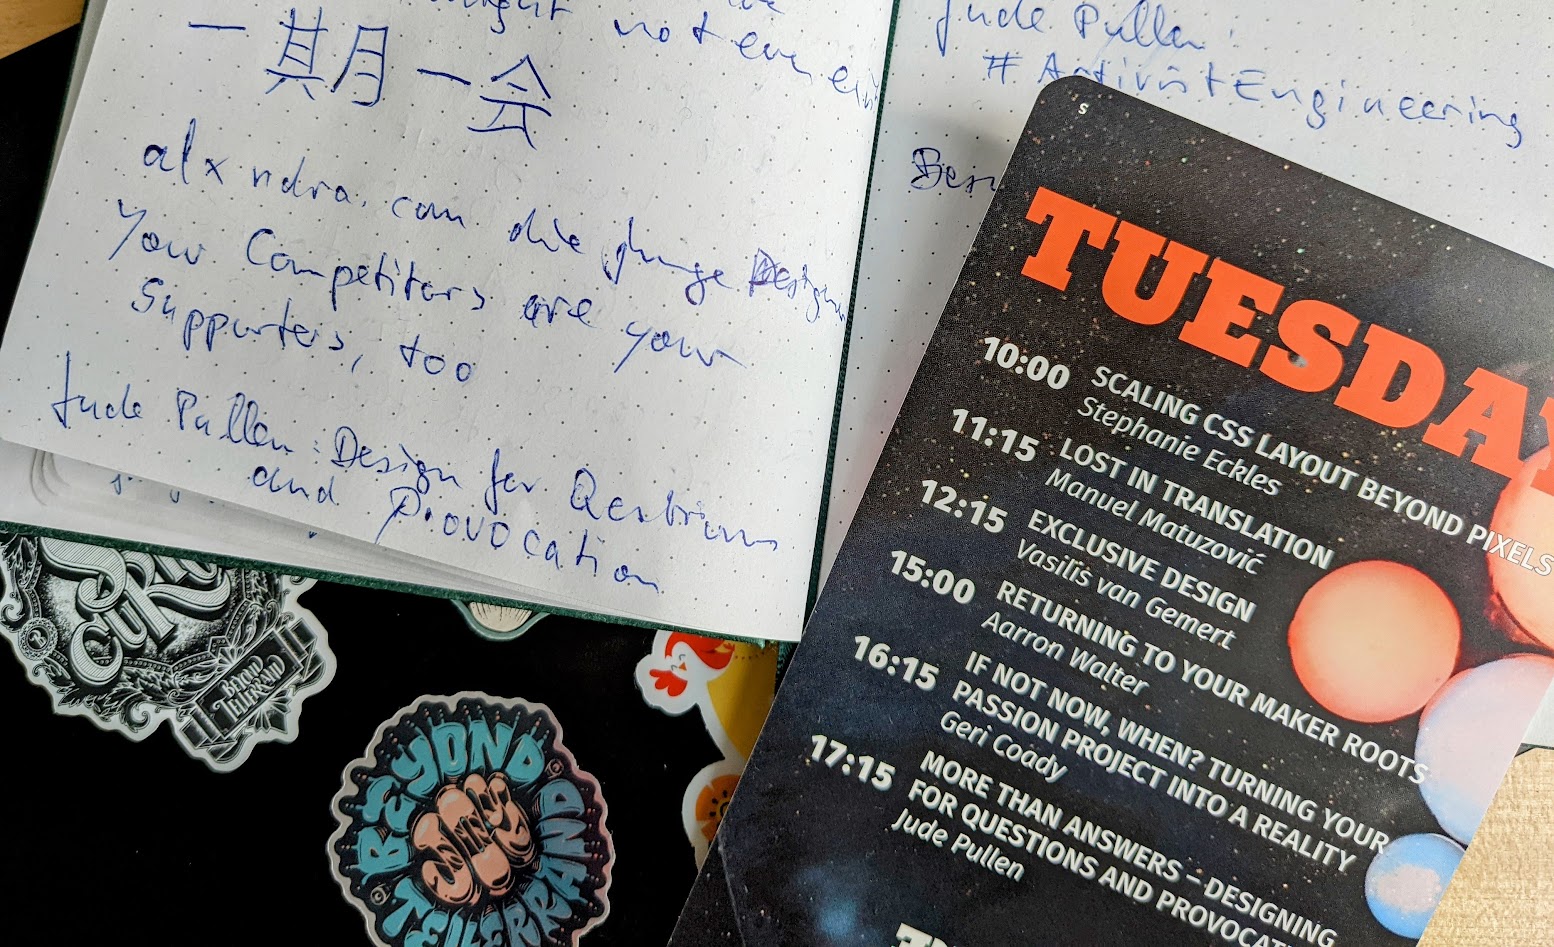 not even
一期一会
alxndra.com die junge Design
Your Competitors are your
Supporters, too
Jude Pullen: Design for Questions
and Provocation
Jude Pullen:
#ActivistEngineering
S
TUESDAY
10:00 SCALING CSS LAYOUT BEYOND PIXELS
Stephanie Eckles
11:15 LOST IN TRANSLATION
Manuel Matuzović
12:15 EXCLUSIVE DESIGN
Vasilis van Gemert
15:00 RETURNING TO YOUR MAKER ROOTS
Aarron Walter
16:15 IF NOT NOW, WHEN? TURNING YOUR
PASSION PROJECT INTO A REALITY
Geri Coady
17:15 MORE THAN ANSWERS – DESIGNING
FOR QUESTIONS AND PROVOCATI
Jude Pullen
BEYOND
TELLERRAND